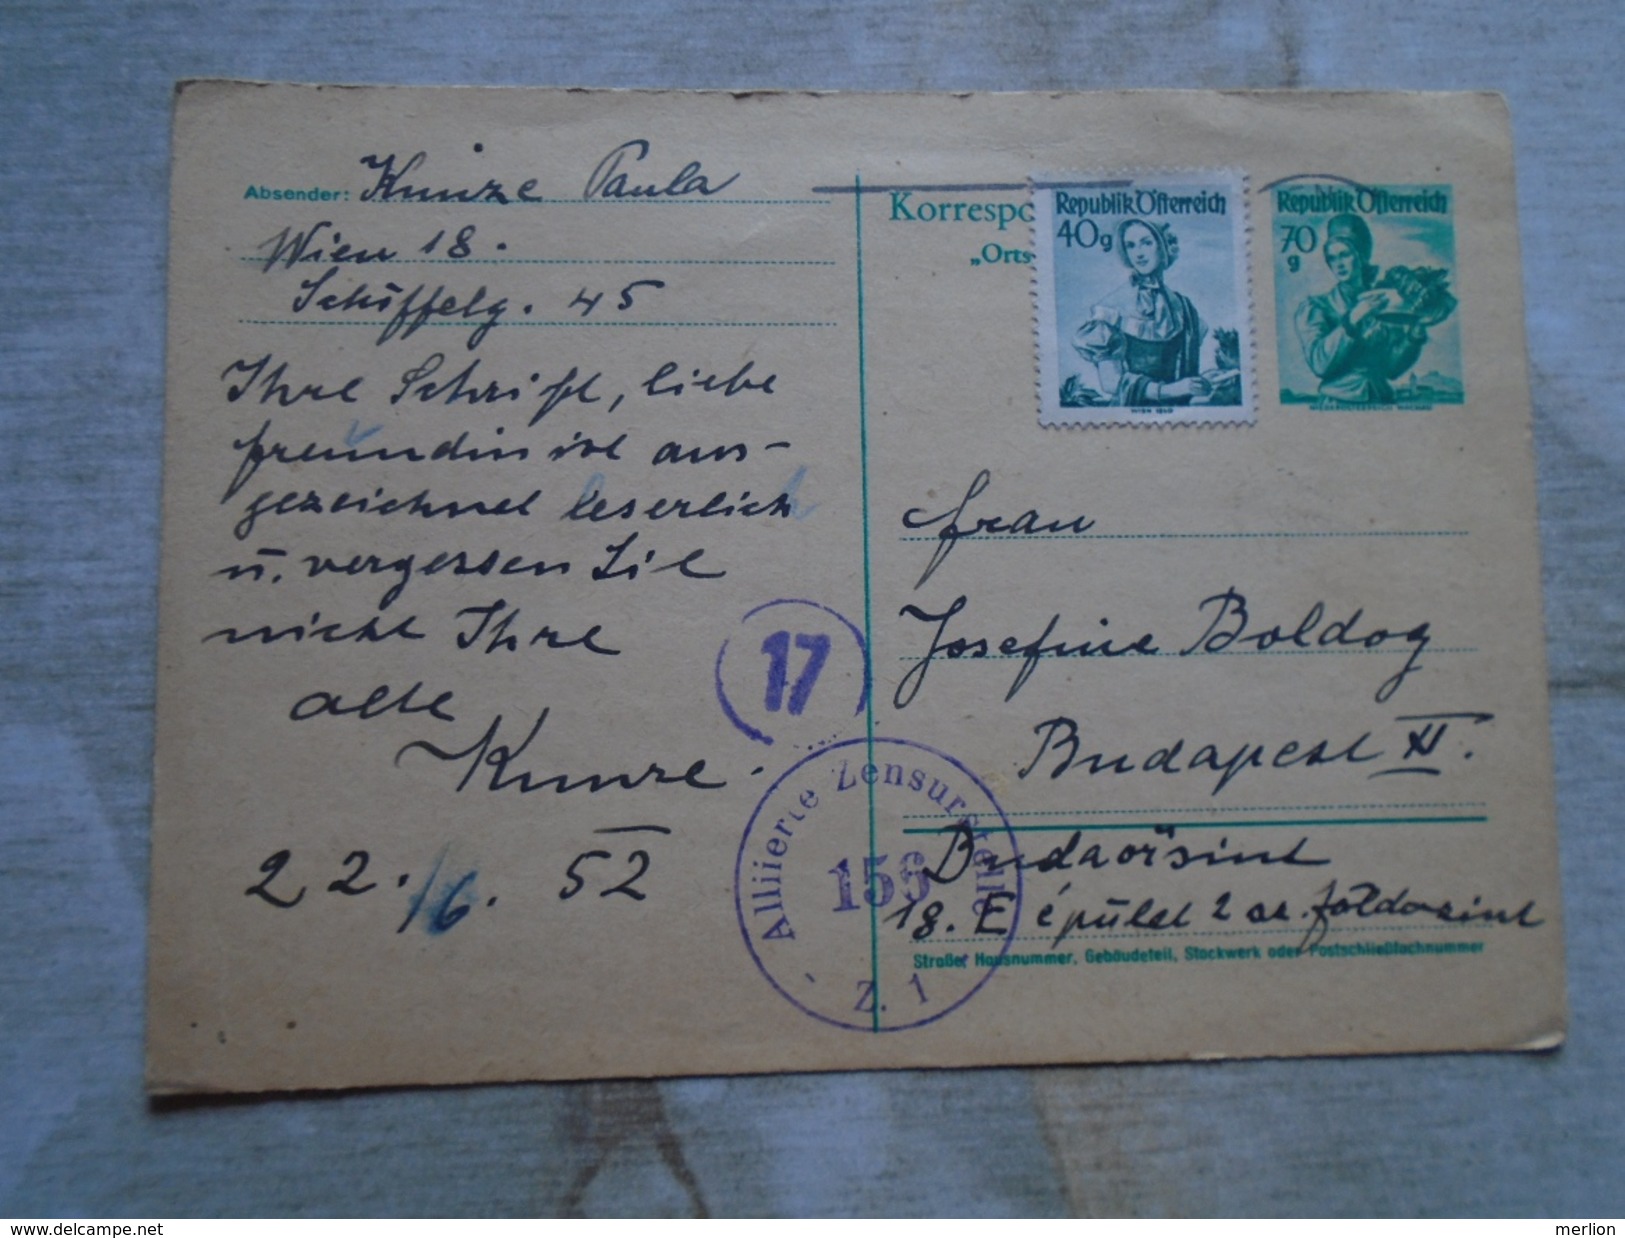 Absender: Kunze Paula
Wien 18.
Schöffelg. 45
Ihre Schrift, liebe
freundin ist aus-
gezeichnet leserlich
u. vergessen Sie
nicht Ihre
alte
Kunze.
22./6. 52
17
Alliierte Zensurstelle
156
Z. 1
Korrespo
„Orts-
Republik Österreich
40g
WIEN 1840
Republik Österreich
70
g
NIEDERÖSTERREICH WACHAU
Frau
Josefine Boldog
Budapest XI.
Budaörsiut
18. E épület 2 a.
Straße, Hausnummer, Gebäudeteil, Stockwerk oder Postschließfachnummer
www.delcampe.net
merlion